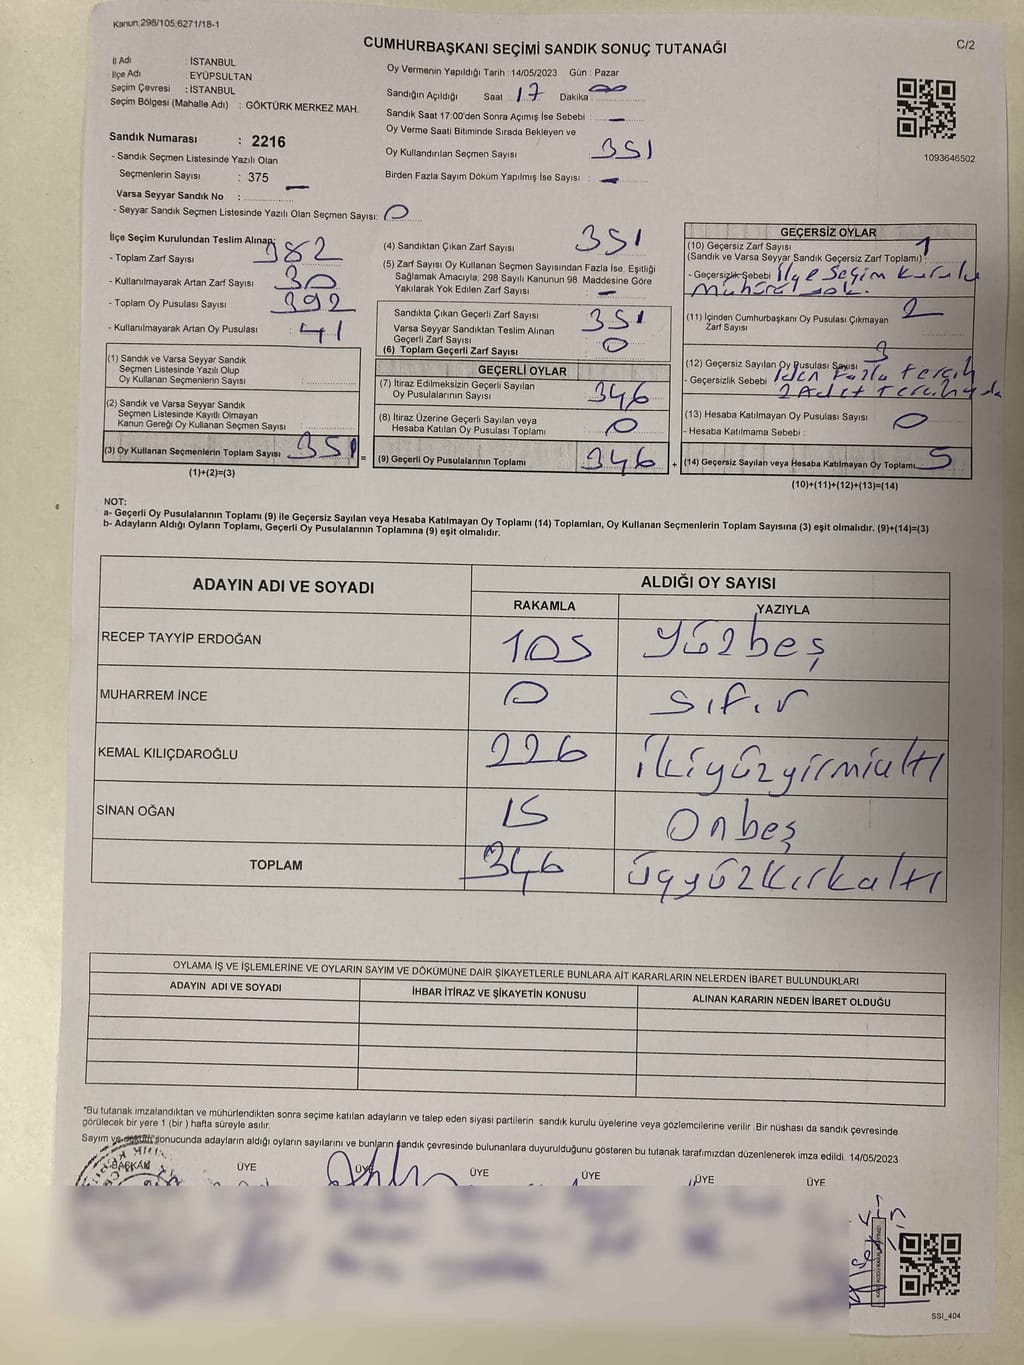 Kanun:298/105,6271/18-1
CUMHURBAŞKANI SEÇİMİ SANDIK SONUÇ TUTANAĞI
C/2
İl Adı : İSTANBUL
İlçe Adı : EYÜPSULTAN
Seçim Çevresi : İSTANBUL
Seçim Bölgesi (Mahalle Adı) : GÖKTÜRK MERKEZ MAH.
Sandık Numarası : 2216
- Sandık Seçmen Listesinde Yazılı Olan
Seçmenlerin Sayısı : 375
Varsa Seyyar Sandık No : —
- Seyyar Sandık Seçmen Listesinde Yazılı Olan Seçmen Sayısı: 0
Oy Vermenin Yapıldığı Tarih : 14/05/2023 Gün : Pazar
Sandığın Açıldığı Saat : 17 Dakika : 00
Sandık Saat 17:00'den Sonra Açımış İse Sebebi : —
Oy Verme Saati Bitiminde Sırada Bekleyen ve
Oy Kullandırılan Seçmen Sayısı : 351
Birden Fazla Sayım Döküm Yapılmış İse Sayısı : —
1093646502
İlçe Seçim Kurulundan Teslim Alınan;
- Toplam Zarf Sayısı : 382
- Kullanılmayarak Artan Zarf Sayısı : 30
- Toplam Oy Pusulası Sayısı : 392
- Kullanılmayarak Artan Oy Pusulası : 41
(1) Sandık ve Varsa Seyyar Sandık
Seçmen Listesinde Yazılı Olup
Oy Kullanan Seçmenlerin Sayısı :
(2) Sandık ve Varsa Seyyar Sandık
Seçmen Listesinde Kayıtlı Olmayan
Kanun Gereği Oy Kullanan Seçmen Sayısı :
(3) Oy Kullanan Seçmenlerin Toplam Sayısı : 351 =
(1)+(2)=(3)
(4) Sandıktan Çıkan Zarf Sayısı 351
(5) Zarf Sayısı Oy Kullanan Seçmen Sayısından Fazla İse, Eşitliği
Sağlamak Amacıyla, 298 Sayılı Kanunun 98. Maddesine Göre
Yakılarak Yok Edilen Zarf Sayısı : —
Sandıkta Çıkan Geçerli Zarf Sayısı : 351
Varsa Seyyar Sandıktan Teslim Alınan
Geçerli Zarf Sayısı : 0
(6) Toplam Geçerli Zarf Sayısı
GEÇERLİ OYLAR
(7) İtiraz Edilmeksizin Geçerli Sayılan
Oy Pusulalarının Sayısı : 346
(8) İtiraz Üzerine Geçerli Sayılan veya
Hesaba Katılan Oy Pusulası Toplamı : 0
(9) Geçerli Oy Pusulalarının Toplamı 346 +
GEÇERSİZ OYLAR
(10) Geçersiz Zarf Sayısı 1
(Sandık ve Varsa Seyyar Sandık Geçersiz Zarf Toplamı) :
- Geçersizlik Sebebi : İlçe Seçim Kurulu
Mührü yok.
(11) İçinden Cumhurbaşkanı Oy Pusulası Çıkmayan 2
Zarf Sayısı
(12) Geçersiz Sayılan Oy Pusulası Sayısı 3
- Geçersizlik Sebebi : 1den fazla tercih
2 Adet Tercih
(13) Hesaba Katılmayan Oy Pusulası Sayısı 0
- Hesaba Katılmama Sebebi :
(14) Geçersiz Sayılan veya Hesaba Katılmayan Oy Toplamı 5
(10)+(11)+(12)+(13)=(14)
NOT:
a- Geçerli Oy Pusulalarının Toplamı (9) ile Geçersiz Sayılan veya Hesaba Katılmayan Oy Toplamı (14) Toplamları, Oy Kullanan Seçmenlerin Toplam Sayısına (3) eşit olmalıdır. (9)+(14)=(3)
b- Adayların Aldığı Oyların Toplamı, Geçerli Oy Pusulalarının Toplamına (9) eşit olmalıdır.
ADAYIN ADI VE SOYADI
ALDIĞI OY SAYISI
RAKAMLA YAZIYLA
RECEP TAYYİP ERDOĞAN 105 Yüzbeş
MUHARREM İNCE 0 Sıfır
KEMAL KILIÇDAROĞLU 226 İkiyüzyirmialtı
SİNAN OĞAN 15 Onbeş
TOPLAM 346 üçyüzkırkaltı
OYLAMA İŞ VE İŞLEMLERİNE VE OYLARIN SAYIM VE DÖKÜMÜNE DAİR ŞİKAYETLERLE BUNLARA AİT KARARLARIN NELERDEN İBARET BULUNDUKLARI
ADAYIN ADI VE SOYADI İHBAR İTİRAZ VE ŞİKAYETİN KONUSU ALINAN KARARIN NEDEN İBARET OLDUĞU
*Bu tutanak imzalandıktan ve mühürlendikten sonra seçime katılan adayların ve talep eden siyasi partilerin sandık kurulu üyelerine veya gözlemcilerine verilir .Bir nüshası da sandık çevresinde
görülecek bir yere 1 (bir ) hafta süreyle asılır.
Sayım ve döküm sonucunda adayların aldığı oyların sayılarını ve bunların sandık çevresinde bulunanlara duyurulduğunu gösteren bu tutanak tarafımızdan düzenlenerek imza edildi. 14/05/2023
BAŞKAN ÜYE ÜYE ÜYE ÜYE ÜYE ÜYE
SSI_404